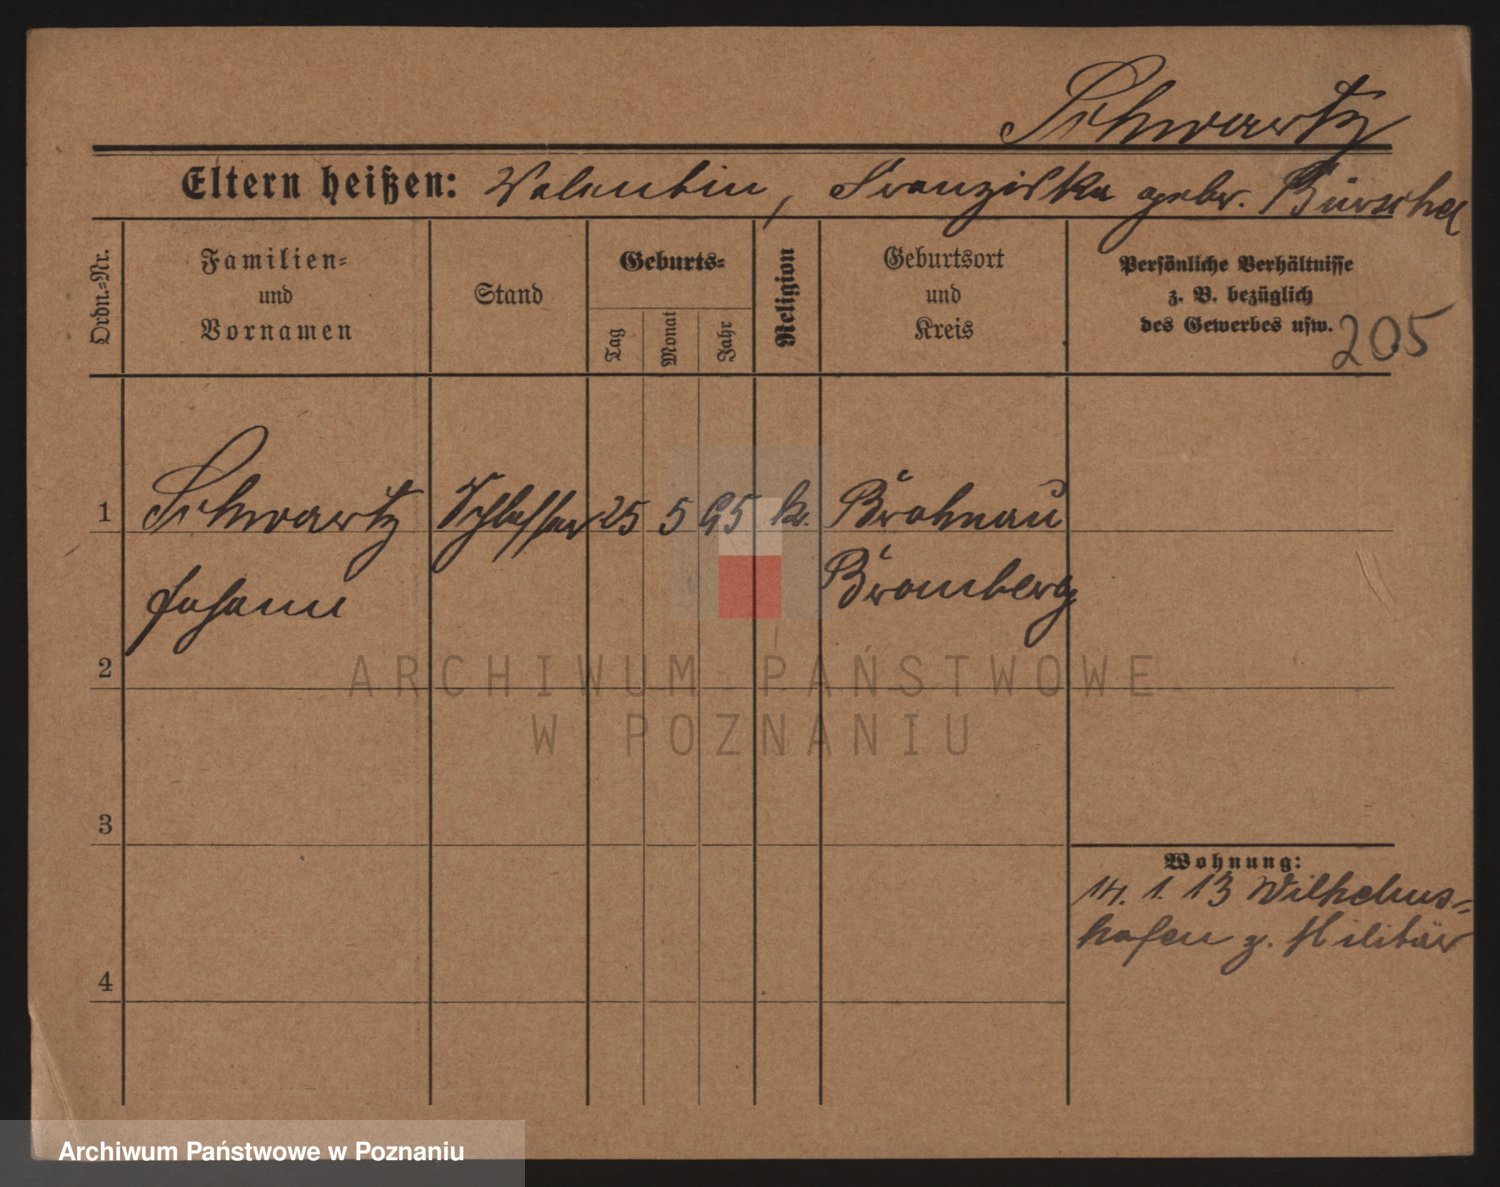 Schwartz
Eltern heißen: Valentin, Franziska gebr. Bürschel
Ordn.-Nr.
Familien-
und
Vornamen
Stand
Geburts-
Tag
Monat
Jahr
Religion
Geburtsort
und
Kreis
Persönliche Verhältnisse
z. B. bezüglich
des Gewerbes usw.
205
1
Schwartz Schlosser 25 5 95 k. Brahnau
Johann Bromberg
2
ARCHIWUM PAŃSTWOWE
W POZNANIU
3
Wohnung:
14. 1. 13 Wilhelms-
hafen z. Militär
4
Archiwum Państwowe w Poznaniu